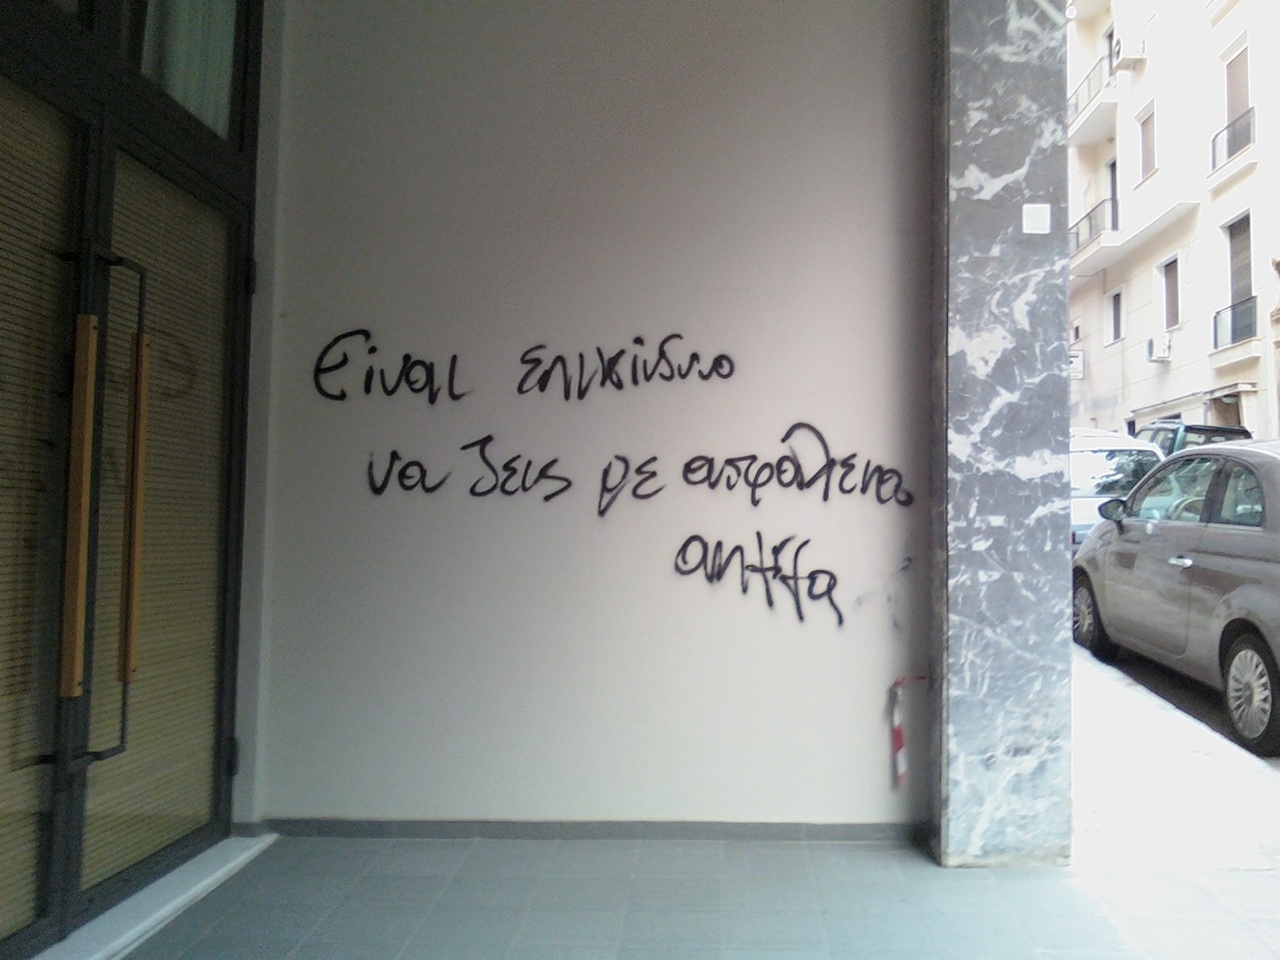 Είναι επικίνδυνο
να ζεις με ασφάλεια
αντίfα